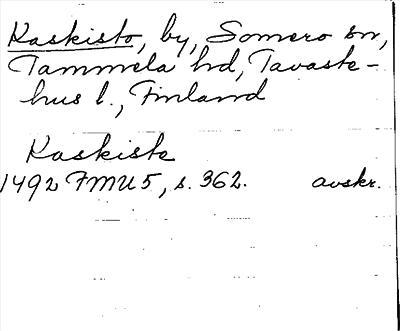 Kaskisto, by, Somero sn,
Tammela hd, Tavaste-
hus l., Finland
Kaskiste
1492 FMU 5, s. 362. avskr.